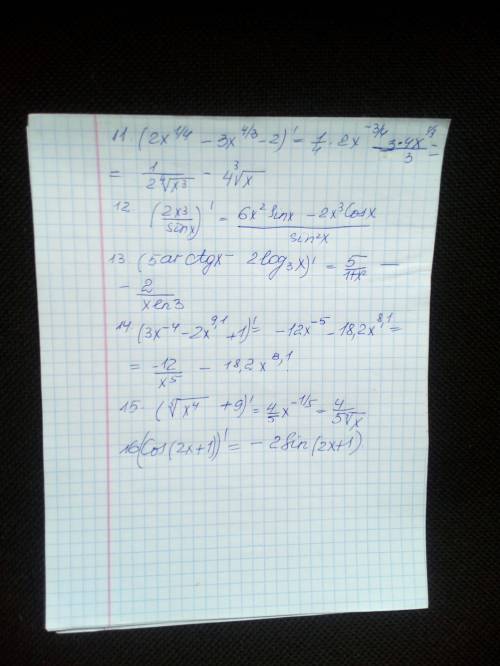 11 (2x^{1/4} - 3x^{4/3} - 2)' = 1/4 · 2x^{-3/4} - 3·4x^{1/3}/3 =
= 1/(2∜x³) - 4∛x
12. (2x³/sinx)' = (6x² sinx - 2x³ cosx)/sin²x
13 (5arctgx - 2log₃x)' = 5/(1+x²) -
- 2/(xln3)
14 (3x^{-4} - 2x^{9,1} + 1)' = -12x^{-5} - 18,2x^{8,1} =
= -12/x⁵ - 18,2x^{8,1}
15. (⁵√x⁴ + 9)' = 4/5 x^{-1/5} = 4/(5⁵√x)
16 (Cos(2x+1))' = -2sin(2x+1)